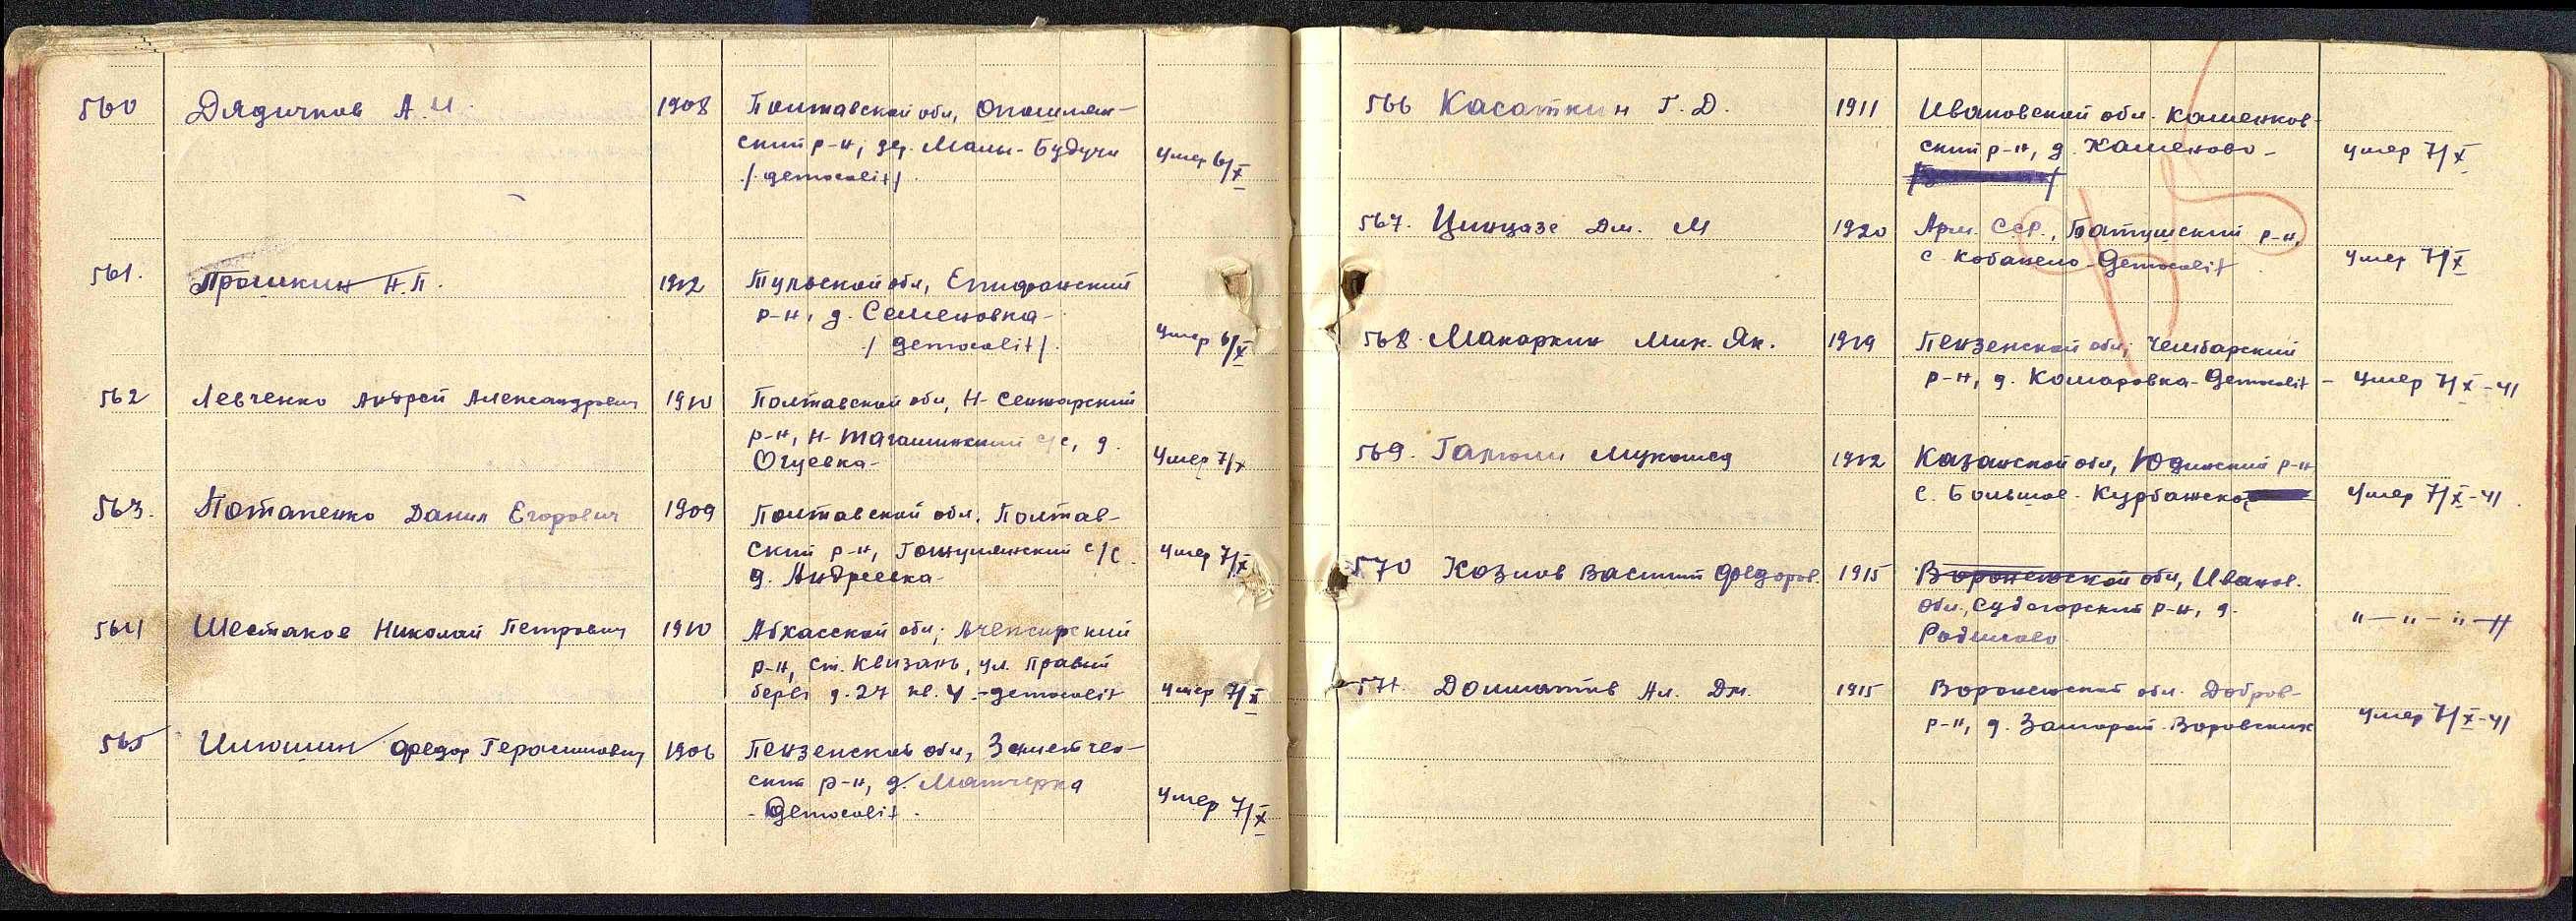 560 Дядичков А.И. 1908 Полтавской обл, Опошлян-
ский р-н, дер. Малы-Будучи умер 6/X
/gemocolit/
561. Прошкин Н.П. 1902 Тульской обл, Епифанский
р-н, д. Семеновка-
/gemocolit/. умер 6/X
562 Левченко Андрей Александрович 1910 Полтавской обл, Н-Сенжарский
р-н, Н- с/с, д.
Огуевка- умер 7/X
563. Потапенко Данил Егорович 1909 Полтавской обл. Полтав-
ский р-н, с/с умер 7/X
д. Андреевка-
564 Шестаков Николай Петрович 1910 Абхасской обл;
р-н, ст. Квизань, ул. Правый
берег д. 27 кв. 4 -gemocolit умер 7/X
565 Илюшин Федор Герасимович 1906 Пензенской обл, Земетчен-
ский р-н, д. Матчерка
-Gemocolit. умер 7/X
566 Касаткин Г.Д. 1911 Ивановской обл. Камешков-
ский р-н, д. Камешово- умер 7/X
567. Цинцазе Дм. М 1920 Арм. ССР., Батумский р-н,
с. Кобалело-Gemocolit умер 7/X
568. Макаркин Мик. Як. 1919 Пензенской обл; Чембарский
р-н, д. Комаровка-Gemocolit - умер 7/X-41
569. Мукомед 1912 Казанской обл, Юдинский р-н
с. Большое-Курбанско умер 7/X-41
570 Козлов Василий Федоров. 1915 Воронежской обл, Иванов.
обл., Судогорский р-н, д.
Родилово "-"-"-"
571. Долматов Ал. Дм. 1915 Воронежской обл. Добров-
р-н, д. умер 7/X-41